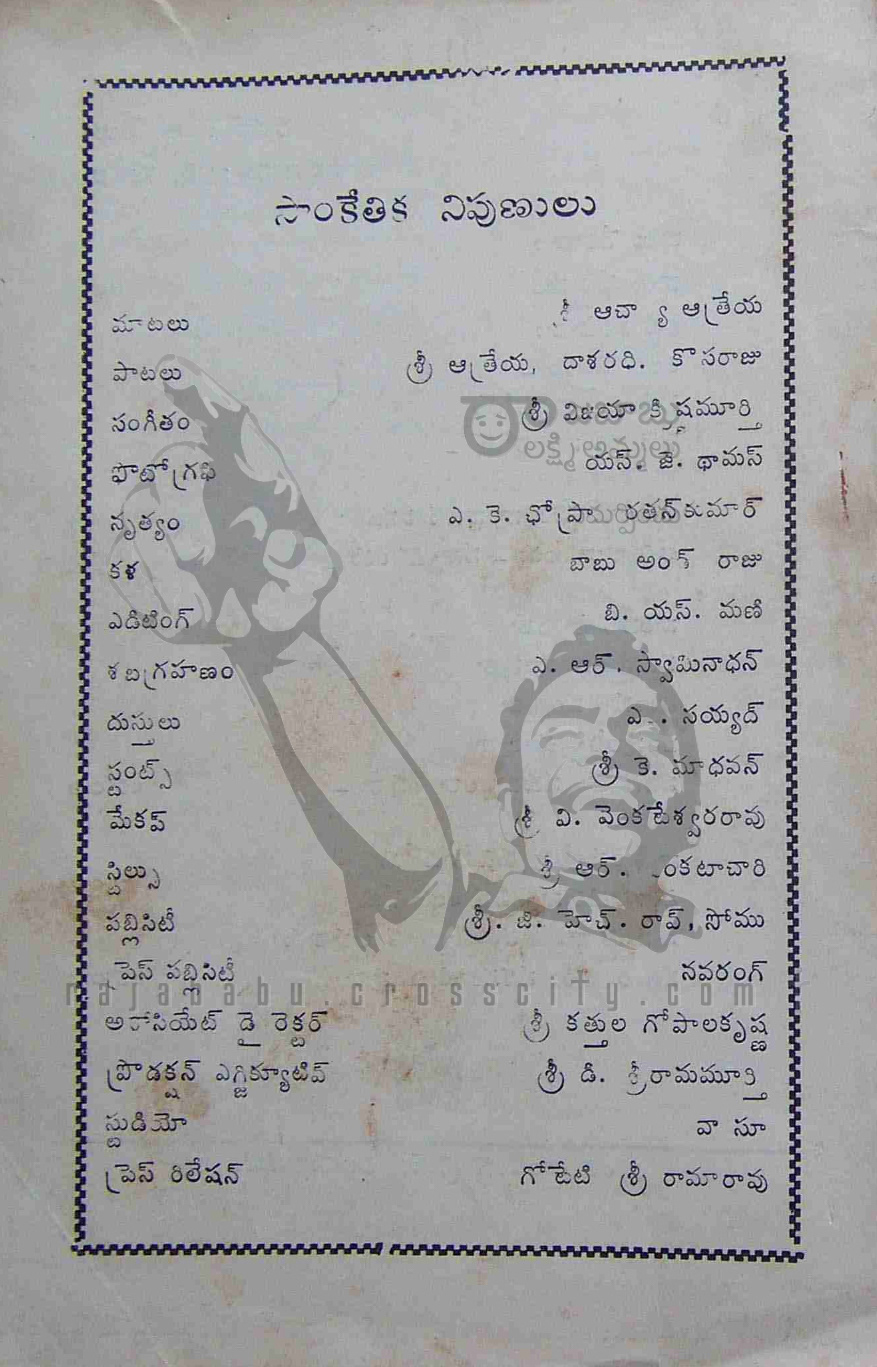 సాంకేతిక నిపుణులు
మాటలు శ్రీ ఆచార్య ఆత్రేయ
పాటలు శ్రీ ఆత్రేయ, దాశరధి. కొసరాజు
సంగీతం శ్రీ విజయా కృష్ణమూర్తి
ఫొటోగ్రఫి యస్. జె. థామస్
నృత్యం ఎ. కె. ఛోప్రా రతన్‌కుమార్
కళ బాబు అంక్ రాజు
ఎడిటింగ్ బి. యస్. మణి
శబ్దగ్రహణం ఎ. ఆర్. స్వామినాధన్
దుస్తులు సయ్యద్
స్టంట్స్ శ్రీ కె. మాధవన్
మేకప్ శ్రీ వి. వెంకటేశ్వరరావు
స్టిల్సు శ్రీ ఆర్.
పబ్లిసిటీ శ్రీ. జి. హెచ్. రావ్, సోము
ప్రెస్ పబ్లిసిటీ నవరంగ్
rajababu.crosscity.com
అసోసియేట్ డైరెక్టర్ శ్రీ కత్తుల గోపాలకృష్ణ
ప్రొడక్షన్ ఎగ్జిక్యూటివ్ శ్రీ డి. శ్రీరామమూర్తి
స్టుడియో వాసూ
ప్రెస్ రిలేషన్ గోటేటి శ్రీ రామారావు